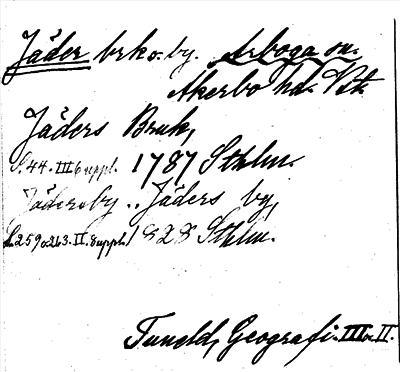 Jäder brk o. by. Arboga sn.
Åkerbo hd. Vstm.
Jäders Bruk,
S. 44. III 6 uppl. 1787 Sthlm.
Jädersby .. Jäders by,
S. 259 o. 263. II. 8 uppl. 1828 Sthlm.
Tuneld, Geografi. III o. II.